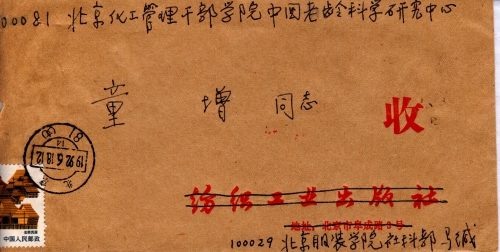 100081 北京化工管理干部学院中国老龄科学研究中心
童 增 同志 收
北京
1992.6.18.12
中国人民邮政
纺织工业出版社
地址：北京市阜成路3号
100029 北京服装学院社科部马城